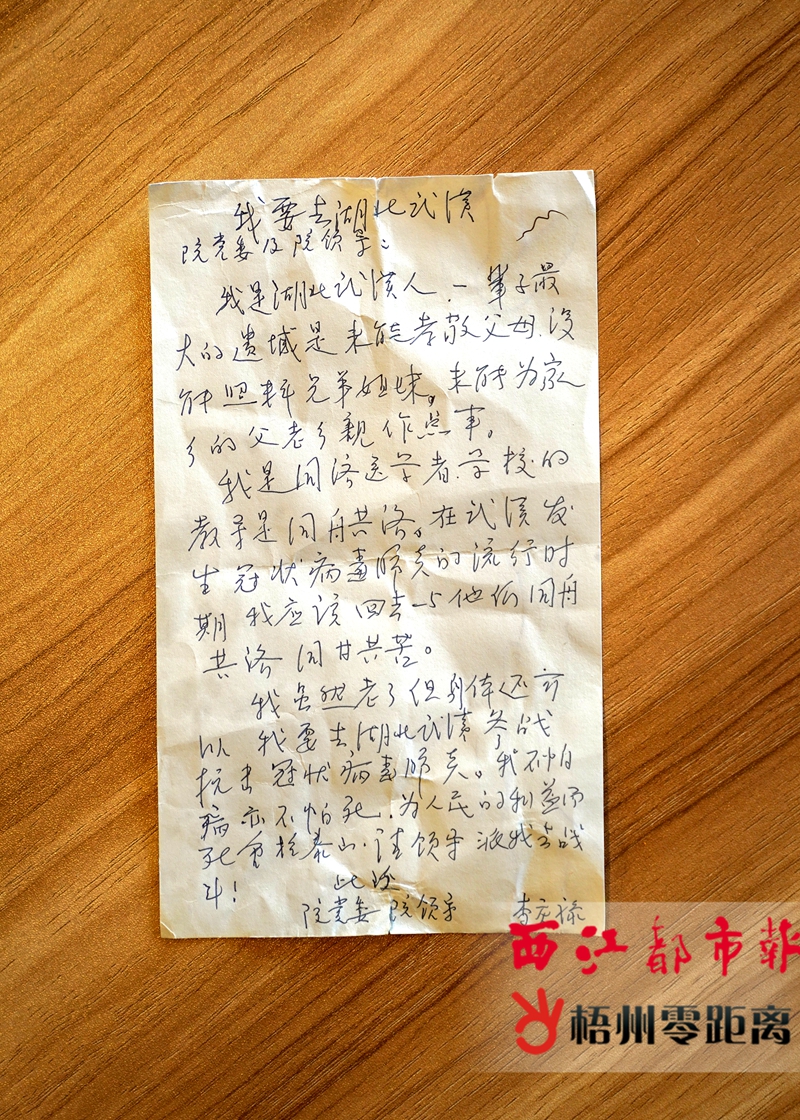 我要去湖北武汉
院党委及院领导:
我是湖北武汉人,一辈子最
大的遗憾是未能孝敬父母,没
能照料兄弟姐妹。未能为家
乡的父老乡亲作点事。
我是同济医学者,学校的
教导是同舟共济。在武汉发
生冠状病毒肺炎的流行时
期我应该回去与他们同舟
共济同甘共苦。
我虽然老了但身体还可
以 我要去湖北武汉参战
抗击冠状病毒肺炎。我不怕
病亦不怕死,为人民的利益而
死重於泰山,请领导派我去战
斗!
此致
院党委 院领导 李
西江都市报
梧州零距离